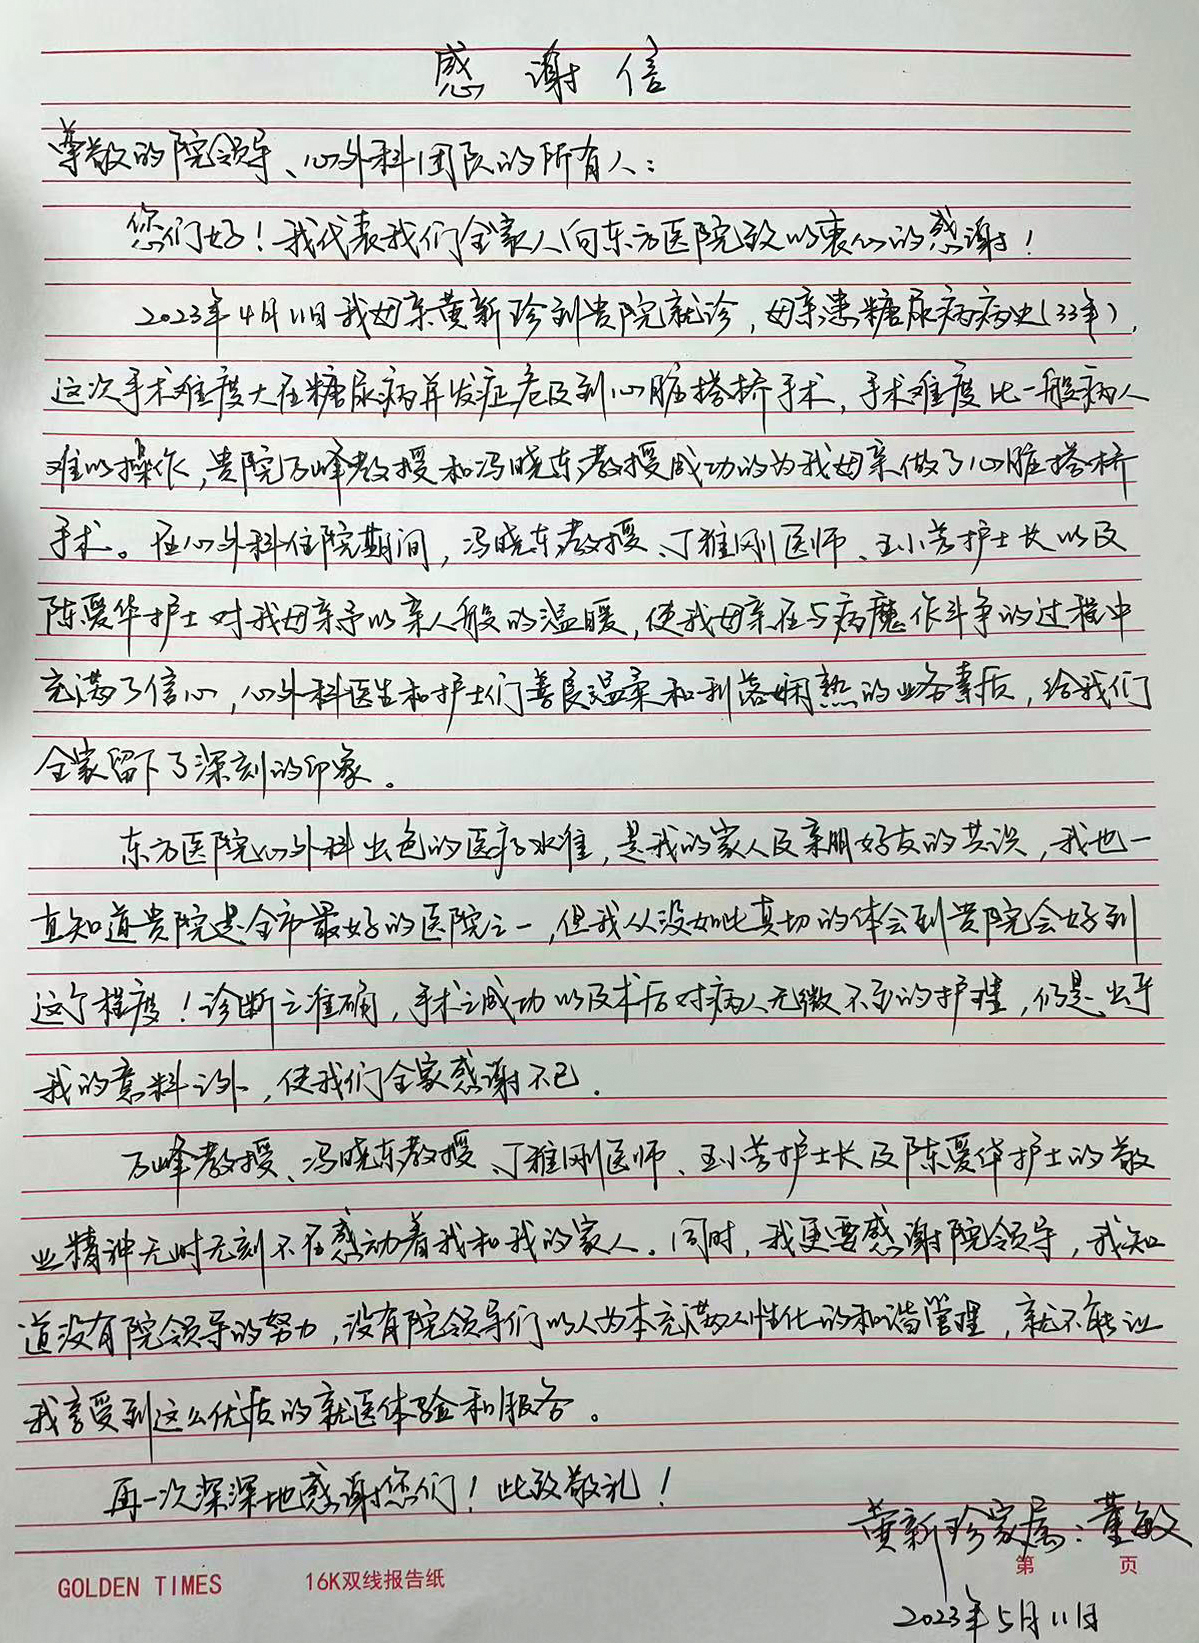 感谢信
尊敬的院领导、心外科团队的所有人:
您们好!我代表我们全家人向东方医院致以衷心的感谢!
2023年4月11日我母亲黄新珍到贵院就诊,母亲患糖尿病病史(33年),
这次手术难度大在糖尿病并发症危及到心脏搭桥手术,手术难度比一般病人
难以操作,贵院万峰教授和冯晓东教授成功的为我母亲做了心脏搭桥
手术。在心外科住院期间,冯晓东教授、丁雅刚医师、王小芳护士长以及
陈爱华护士对我母亲予以亲人般的温暖,使我母亲在与病魔作斗争的过程中
充满了信心,心外科医生和护士们善良温柔和利落娴熟的业务素质,给我们
全家留下了深刻的印象。
东方医院心外科出色的医疗水准,是我的家人及亲朋好友的共识,我也一
直知道贵院是全市最好的医院之一,但我从没如此真切的体会到贵院会好到
这个程度!诊断之准确,手术之成功以及术后对病人无微不至的护理,仍是出乎
我的意料之外,使我们全家感谢不已.
万峰教授、冯晓东教授、丁雅刚医师、王小芳护士长及陈爱华护士的敬
业精神无时无刻不在感动着我和我的家人。同时,我更要感谢院领导,我知
道没有院领导的努力,没有院领导们以人为本充满人性化的和谐管理,就不能让
我享受到这么优质的就医体验和服务。
再一次深深地感谢您们!此致敬礼!
黄新珍家属:董敏
第 页
GOLDEN TIMES 16K双线报告纸
2023年5月11日